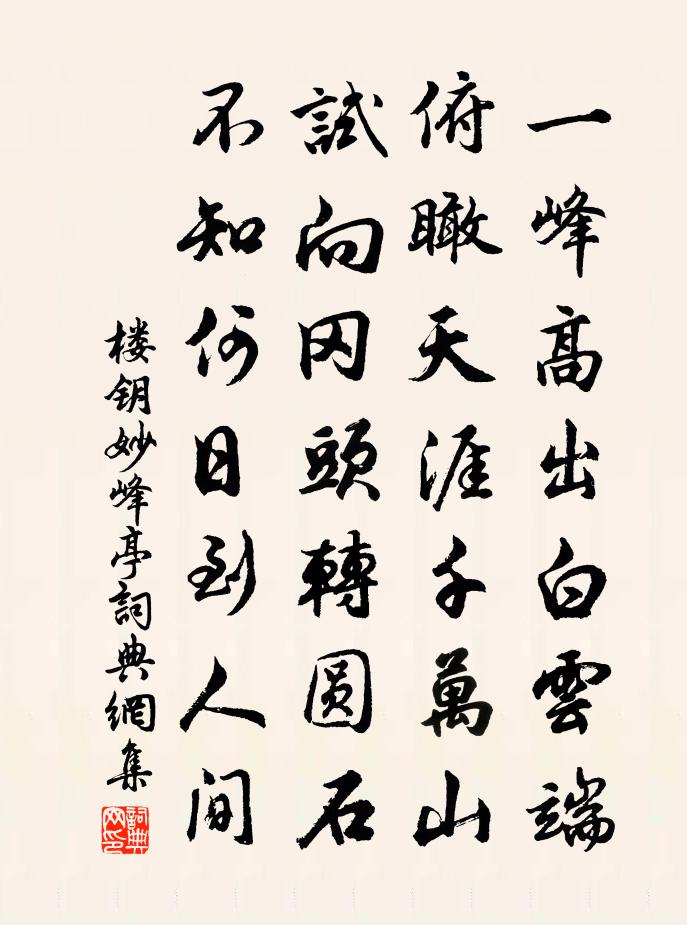 一峰高出白雲端
俯瞰天涯千萬山
試向冈頭轉圆石
不知何日到人间
楼钥妙峰亭詞典網集
詞典網印